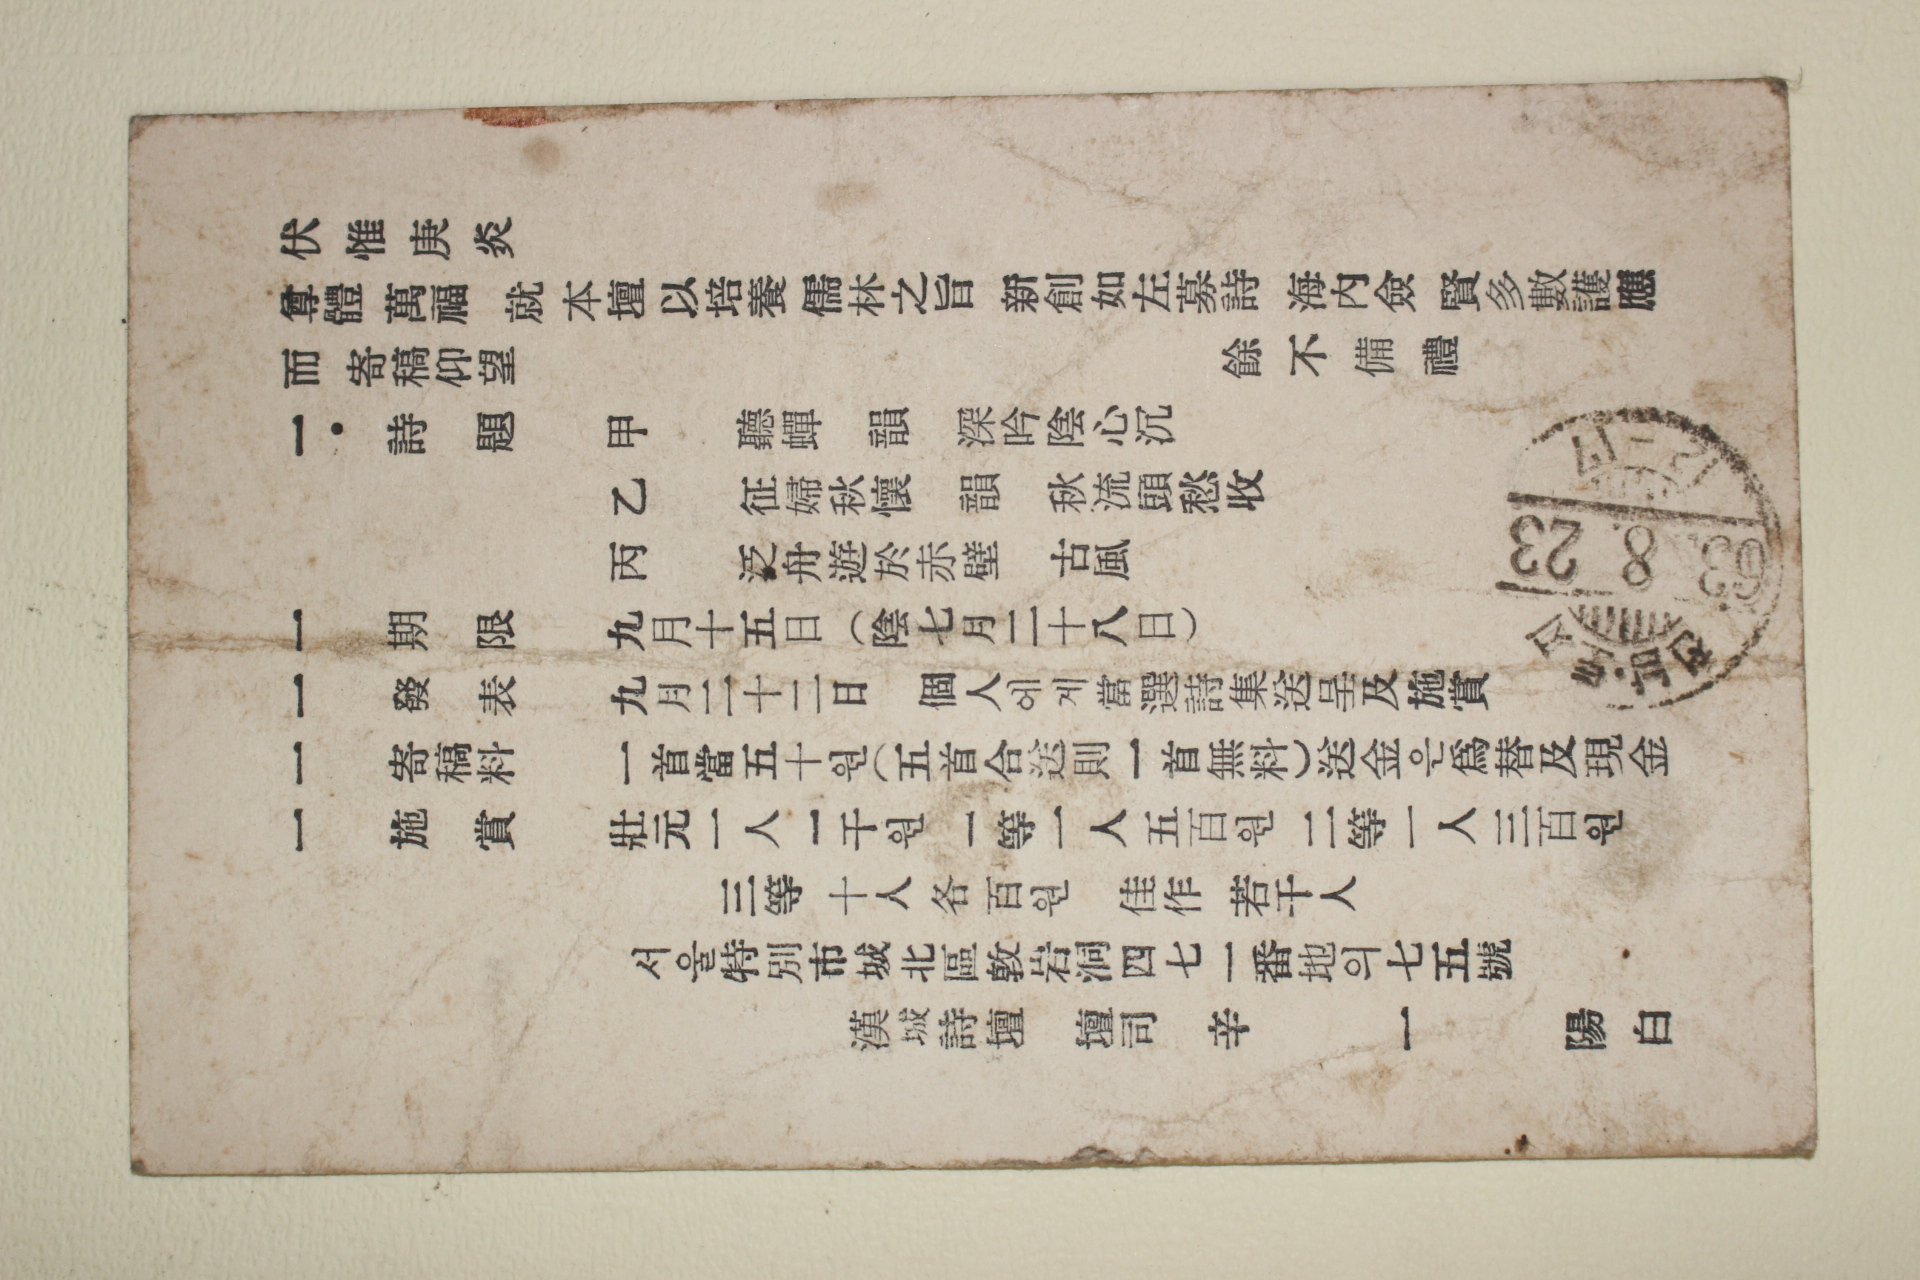 伏惟庚炎
尊體萬福 就本壇以培養儒林之旨 新創如左募詩 海內僉 賢多數護應
而寄稿仰望 餘不備禮
一・詩題 甲 聽蟬 韻 深吟陰心沉
乙 征婦秋懷 韻 秋流頭愁收
丙 泛舟遊於赤壁 古風
一 期限 九月十五日(陰七月二十八日)
一 發表 九月二十二日 個人에게當選詩集送呈及施賞
一 寄稿料 一首當五十원(五首合送則一首無料)送金은爲替及現金
一 施賞 壯元一人一千원 一等一人五百원 二等一人三百원
三等十人各百원 佳作 若干人
서울特別市城北區敦岩洞四七一番地의七五號
漢城詩壇 壇司 辛 一 陽 白
23
8